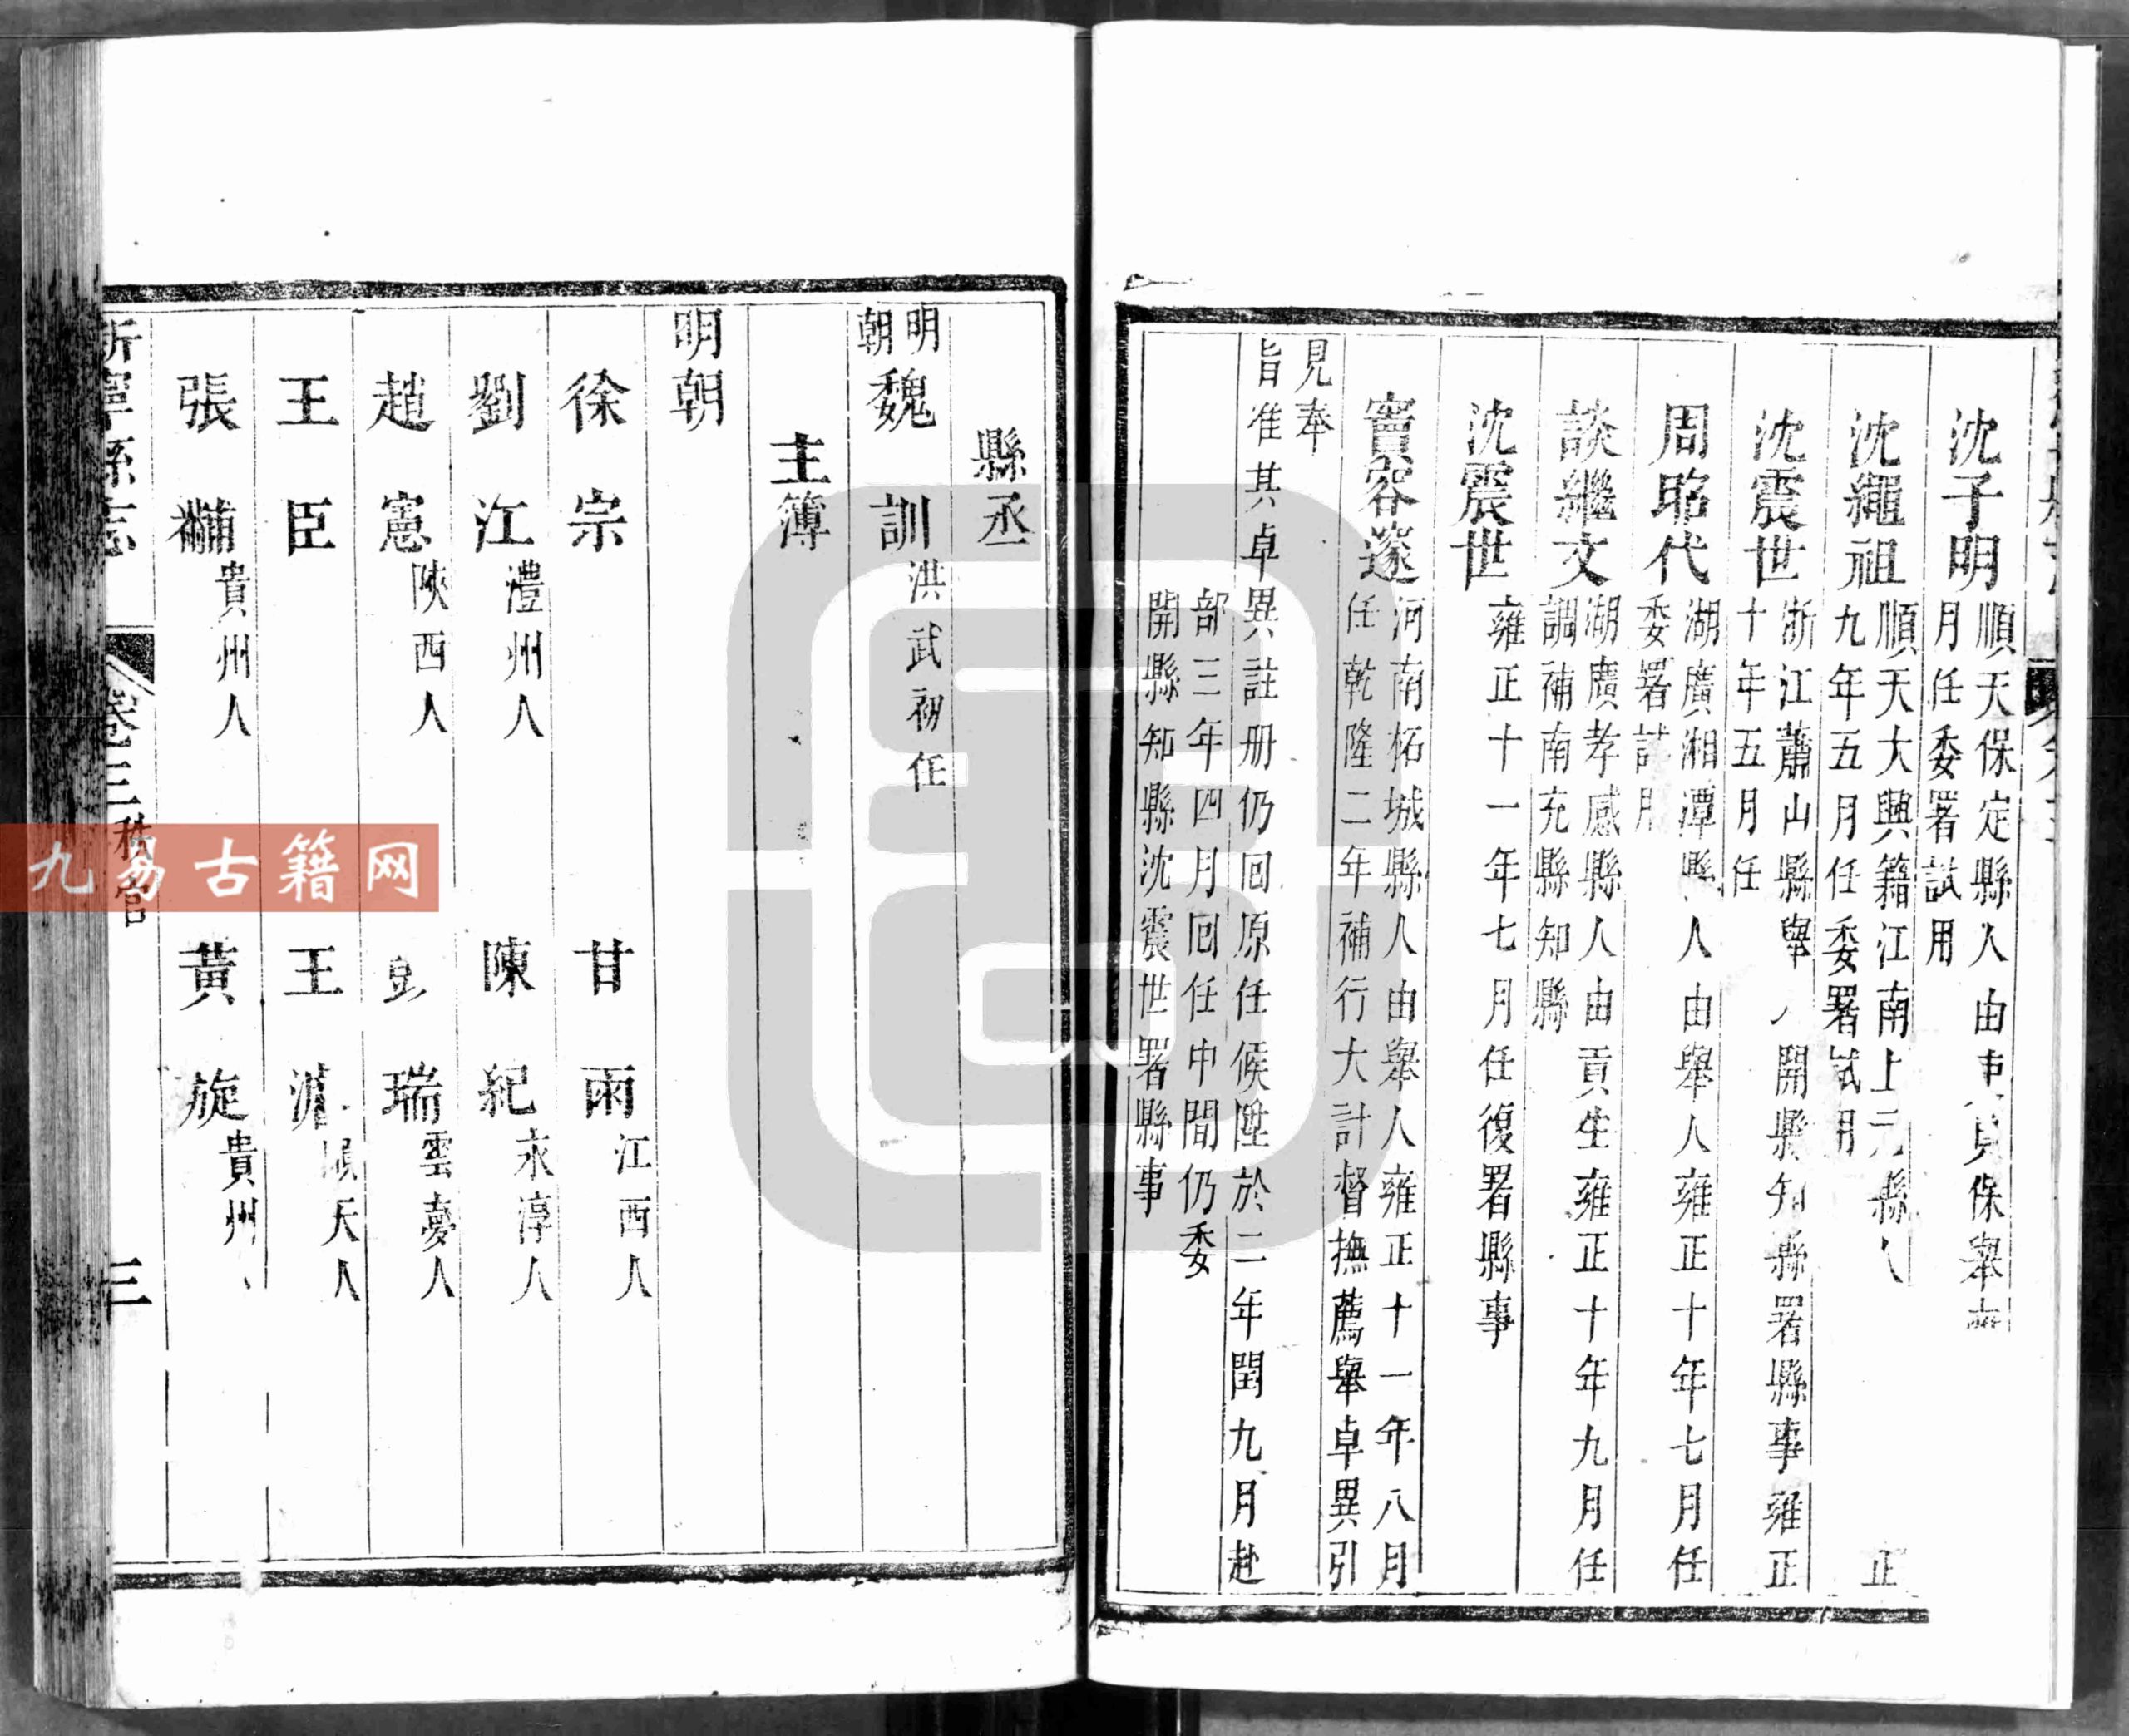 沈子明順天保定縣人由 貢保舉
月任委署試用
沈繩祖順天大興籍江南上元縣人 正
九年五月任委署試用
沈震世浙江蕭山縣舉人開縣知縣署縣事雍正
十年五月任
周昭代湖廣湘潭縣人由舉人雍正十年七月任
委署試用
談繼文湖廣孝感縣人由貢生雍正十年九月任
調補南充縣知縣
沈震世雍正十一年七月任復署縣事
竇容邃河南柘城縣人由舉人雍正十一年八月
任乾隆二年補行大計督撫薦舉卓異引
見奉
旨准其卓異註册仍回原任候陞於二年閏九月赴
部三年四月回任中間仍委
開縣知縣沈震世署縣事
縣丞
明朝魏訓洪武初任
主簿
明朝
徐宗 甘雨江西人
劉江澧州人 陳紀永淳人
趙憲陝西人 彭瑞雲夢人
王臣 王 順天人
張黼貴州人 黃旋貴州
新寧縣志 卷三秩官 三
九易古籍网